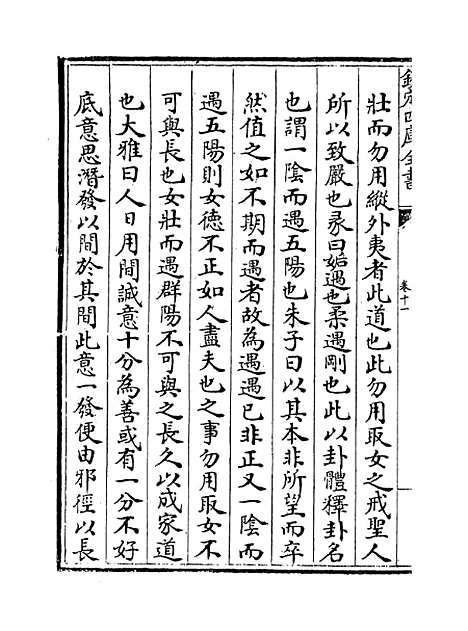 欽定四庫全書
卷十一
壯而勿用縱外夷者此道也此勿用取女之戒聖人
所以致嚴也彖曰姤遇也柔遇剛也此以卦體釋卦名
也謂一陰而遇五陽也朱子曰以其本非所望而卒
然值之如不期而遇者故為遇遇已非正又一陰而
遇五陽則女德不正如人盡夫也之事勿用取女不
可與長也女壯而遇群陽不可與之長久以成家道
也大雅曰人日用間誠意十分為善或有一分不好
底意思潛發以間於其間此意一發便由邪徑以長